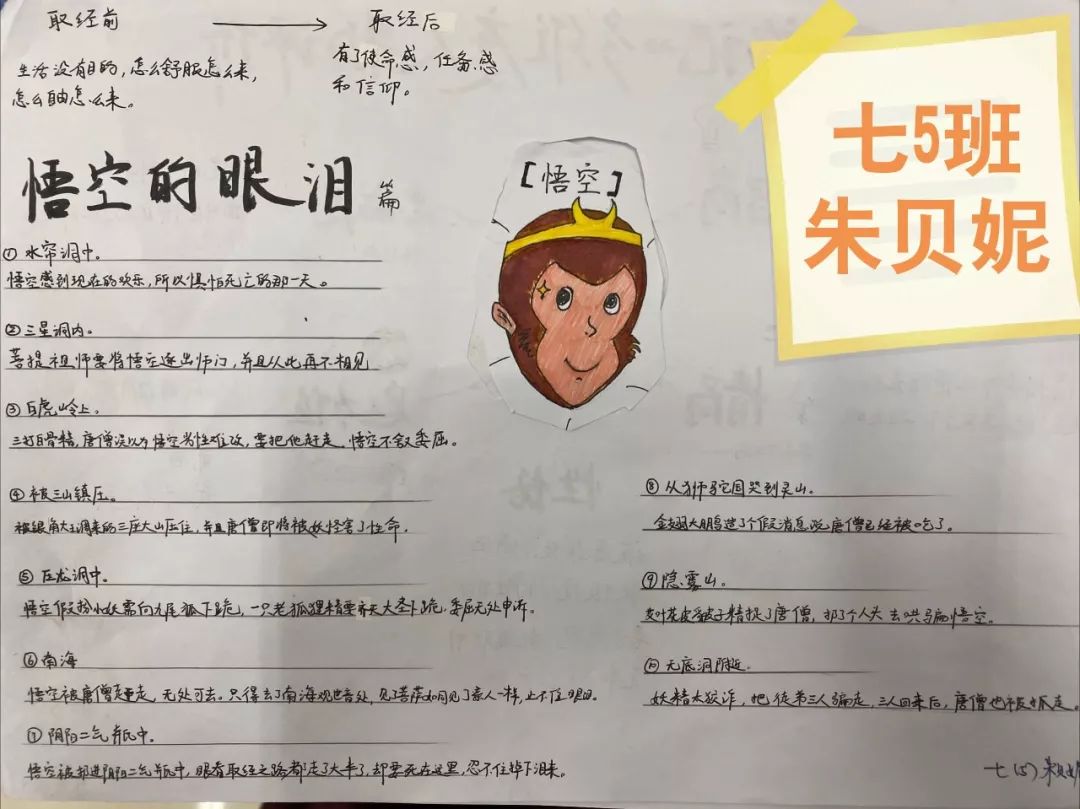 取经前
取经后
生活没有目的,怎么舒服怎么来,
怎么自由怎么来。
有了使命感,任务感
和信仰。
悟空的眼泪篇
[悟空]
七5班
朱贝妮
①水帘洞中。
悟空感到现在的欢乐,所以惧怕死亡的那一天。
②三星洞内。
菩提祖师要将悟空逐出师门,并且从此再不相见
③白虎岭上。
三打白骨精,唐僧误以为悟空劣性难改,要把他赶走。悟空不敌委屈。
④被三山镇压。
被银角大王调来的三座大山压住,并且唐僧即将被妖怪害了性命,
⑤压龙洞中。
悟空假扮小妖需向九尾狐下跪,一只老狐狸精要齐天大圣下跪,委屈无处申诉。
⑥南海
悟空被唐僧赶走,无处可去。只得去了南海观世音处,见了菩萨如同见了亲人一样,止不住眼泪。
⑦阴阳二气瓶中。
悟空被抓进阴阳二气瓶中,眼看取经之路都走了大半了,却要死在这里,忍不住掉下泪来。
⑧从狮驼国哭到灵山。
金翅大鹏造了个假消息说唐僧已经被吃了。
⑨隐雾山。
艾叶花皮豹子精捉了唐僧,扔了个人头去哄骗悟空。
⑩无底洞附近。
妖精太狡诈,把徒弟三人骗走,三人回来后,唐僧也被抓走。
七(5)朱贝妮